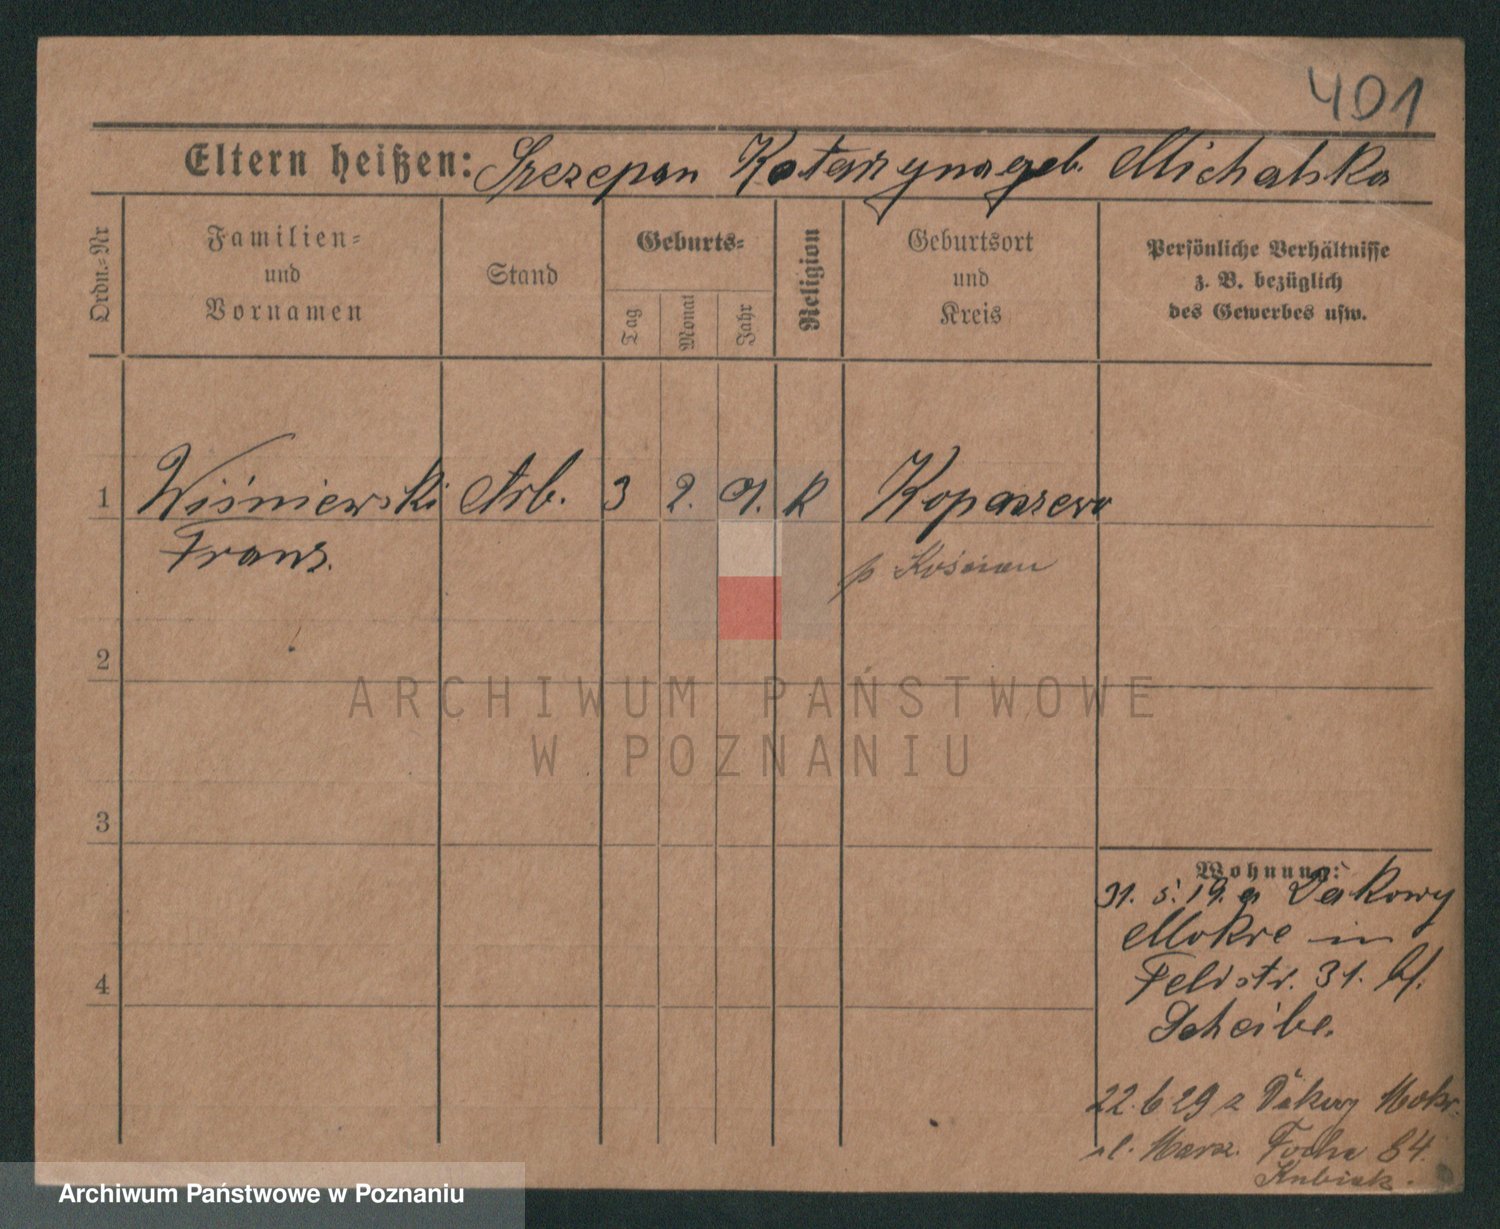 401
Eltern heißen: Szczepan Katarzyna geb. Michalska
Ordn.-Nr
Familien-
und
Vornamen
Stand
Geburts-
Tag
Monat
Jahr
Religion
Geburtsort
und
Kreis
Persönliche Verhältnisse
z. B. bezüglich
des Gewerbes usw.
1 Wiśniewski Arb. 3 2. 01. K Kopaszewo
Franz. p Kościan
2
ARCHIWUM PAŃSTWOWE
W POZNANIU
3
Wohnung:
31. 5. 19. a Dakowy
Mokre in
Feldstr. 31. bf.
Scheibe.
4
22.6.29 z Dakowy Mokr.
ul. Marsz. Focha 84.
Kubiak.
Archiwum Państwowe w Poznaniu